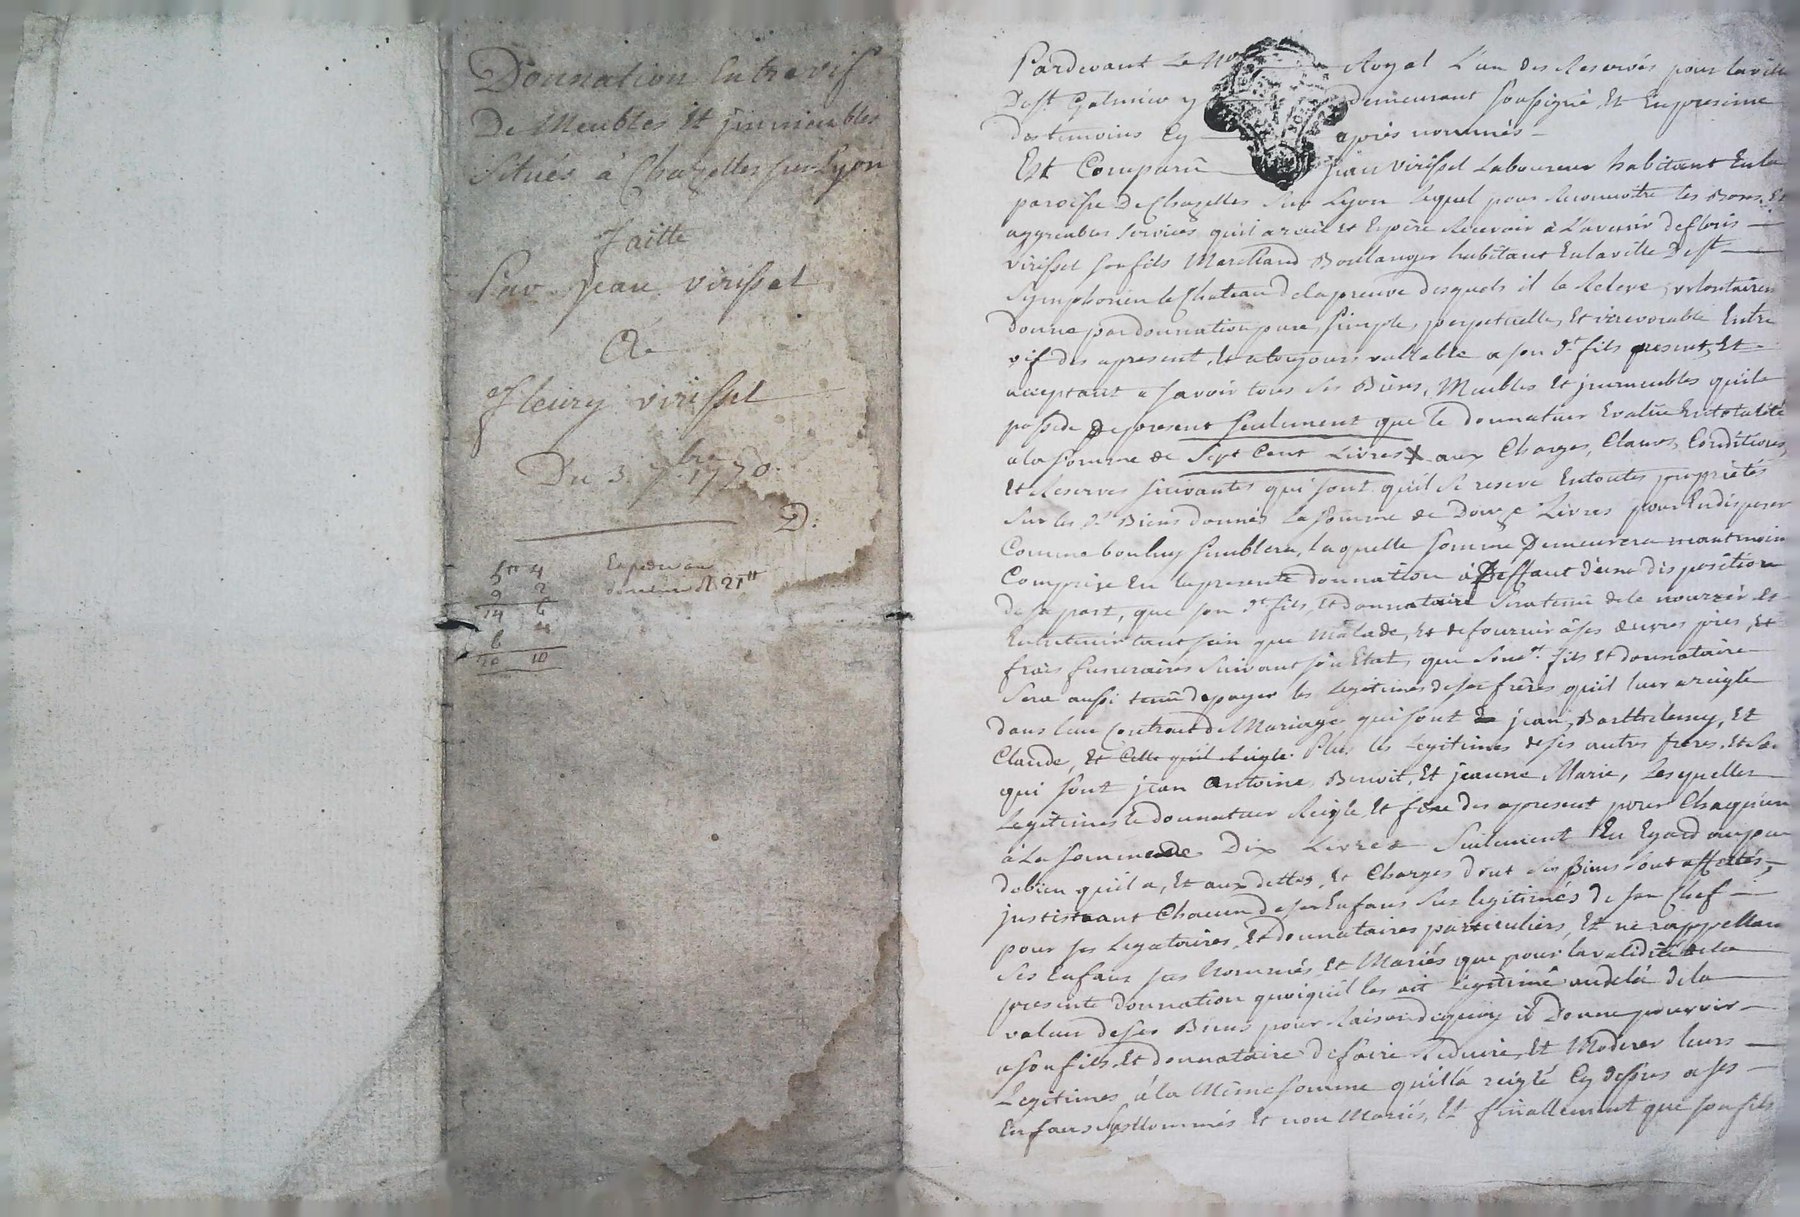 Donnation Entre vif
De Meubles Et jmmeubles
situés à Chazelles sur Lyon
faitte
Par jean virissel
A
fleury virissel
Du 3. 7bre 1770.
D.
5tt 4
9 2
14 6
6 4
20 10
Expedié au
21tt
Pardevant Le Nre Royal L'un des Reservés pour la ville
De st. Galmier y demeurant soussigné Et En presence
des temoins Cy après nommés
Est Comparû jean virissel Laboureur habitant En la
paroisse De Chazelles sur Lyon lequel pour Reconnoitre les Bons, Et
aggreables services qu'il a reçû et Espère Recevoir à L'avenir de floris
virissel son fils Marchand Boulanger habitant En la ville De st.
Symphorien le Chateau de la preuve desquels il le Releve, volontairemt
donne par donnation pure, simple, perpetuelle, Et irrevocable Entre
vif des apresent, Et a toujours vallable a son dt. fils present, Et
acceptant a savoir tous ses Biens, Meubles Et jmmeubles qu'il
possede De present seulement que le donnateur Evalüe En totalité
a la somme de Sept Cent Livres X aux Charges, Clauses, Conditions,
Et Reserves suivantes qui sont qu'il se reserve En toutes proprietés
sur les ds. Biens donnés La somme de Douze Livres pour En disposer
Comme bon luy semblera, laquelle somme Demeurera neantmoin
Comprise En la presente donnation à Deffaut d'une disposition
de sa part, que son dt. fils, Et donnataire sera tenû de le nourrir Et
Entretenir tant sain que Malade, Et de fournir à ses œuvres pies, Et
frais funeraires suivant son Etat, que son dt. fils Et donnataire
sera aussi tenû de payer les legitimes de ses frères qu'il leur a reiglé
dans leur Contract de Mariage qui sont jean, Barthelemy, Et
Claude, Et Celle qu'il Reigle. Plus les Legitimes de ses autres frères, Et sœur
qui sont jean Antoine, Benoit, Et jeanne Marie, Lesquelles
Legitimes le donnateur Reigle, Et fixe des apresent pour Chaqu'un
à La somme de Dix Livres seulement En Egard au peu
de bien qu'il a, Et aux dettes, Et Charges dont ses Biens sont affectés,
jnstituant Chacun de ses Enfans sus legitimés de son Chef
pour ses Legataires, Et donnataires particuliers, Et ne rappellan
ses Enfans sus Nommés Et Mariés que pour la validité de la
presente donnation quoiqu'il les ait Legitimé audelà de la
valeur de ses Biens pour Raison de quoy il Donne pouvoir
a son fils Et donnataire de faire Reduire, Et Moderer leurs
Legitimes à la Même somme qu'il a reiglé Cy dessus a ses
Enfans susNommés Et non Mariés, Et finallement que son fils